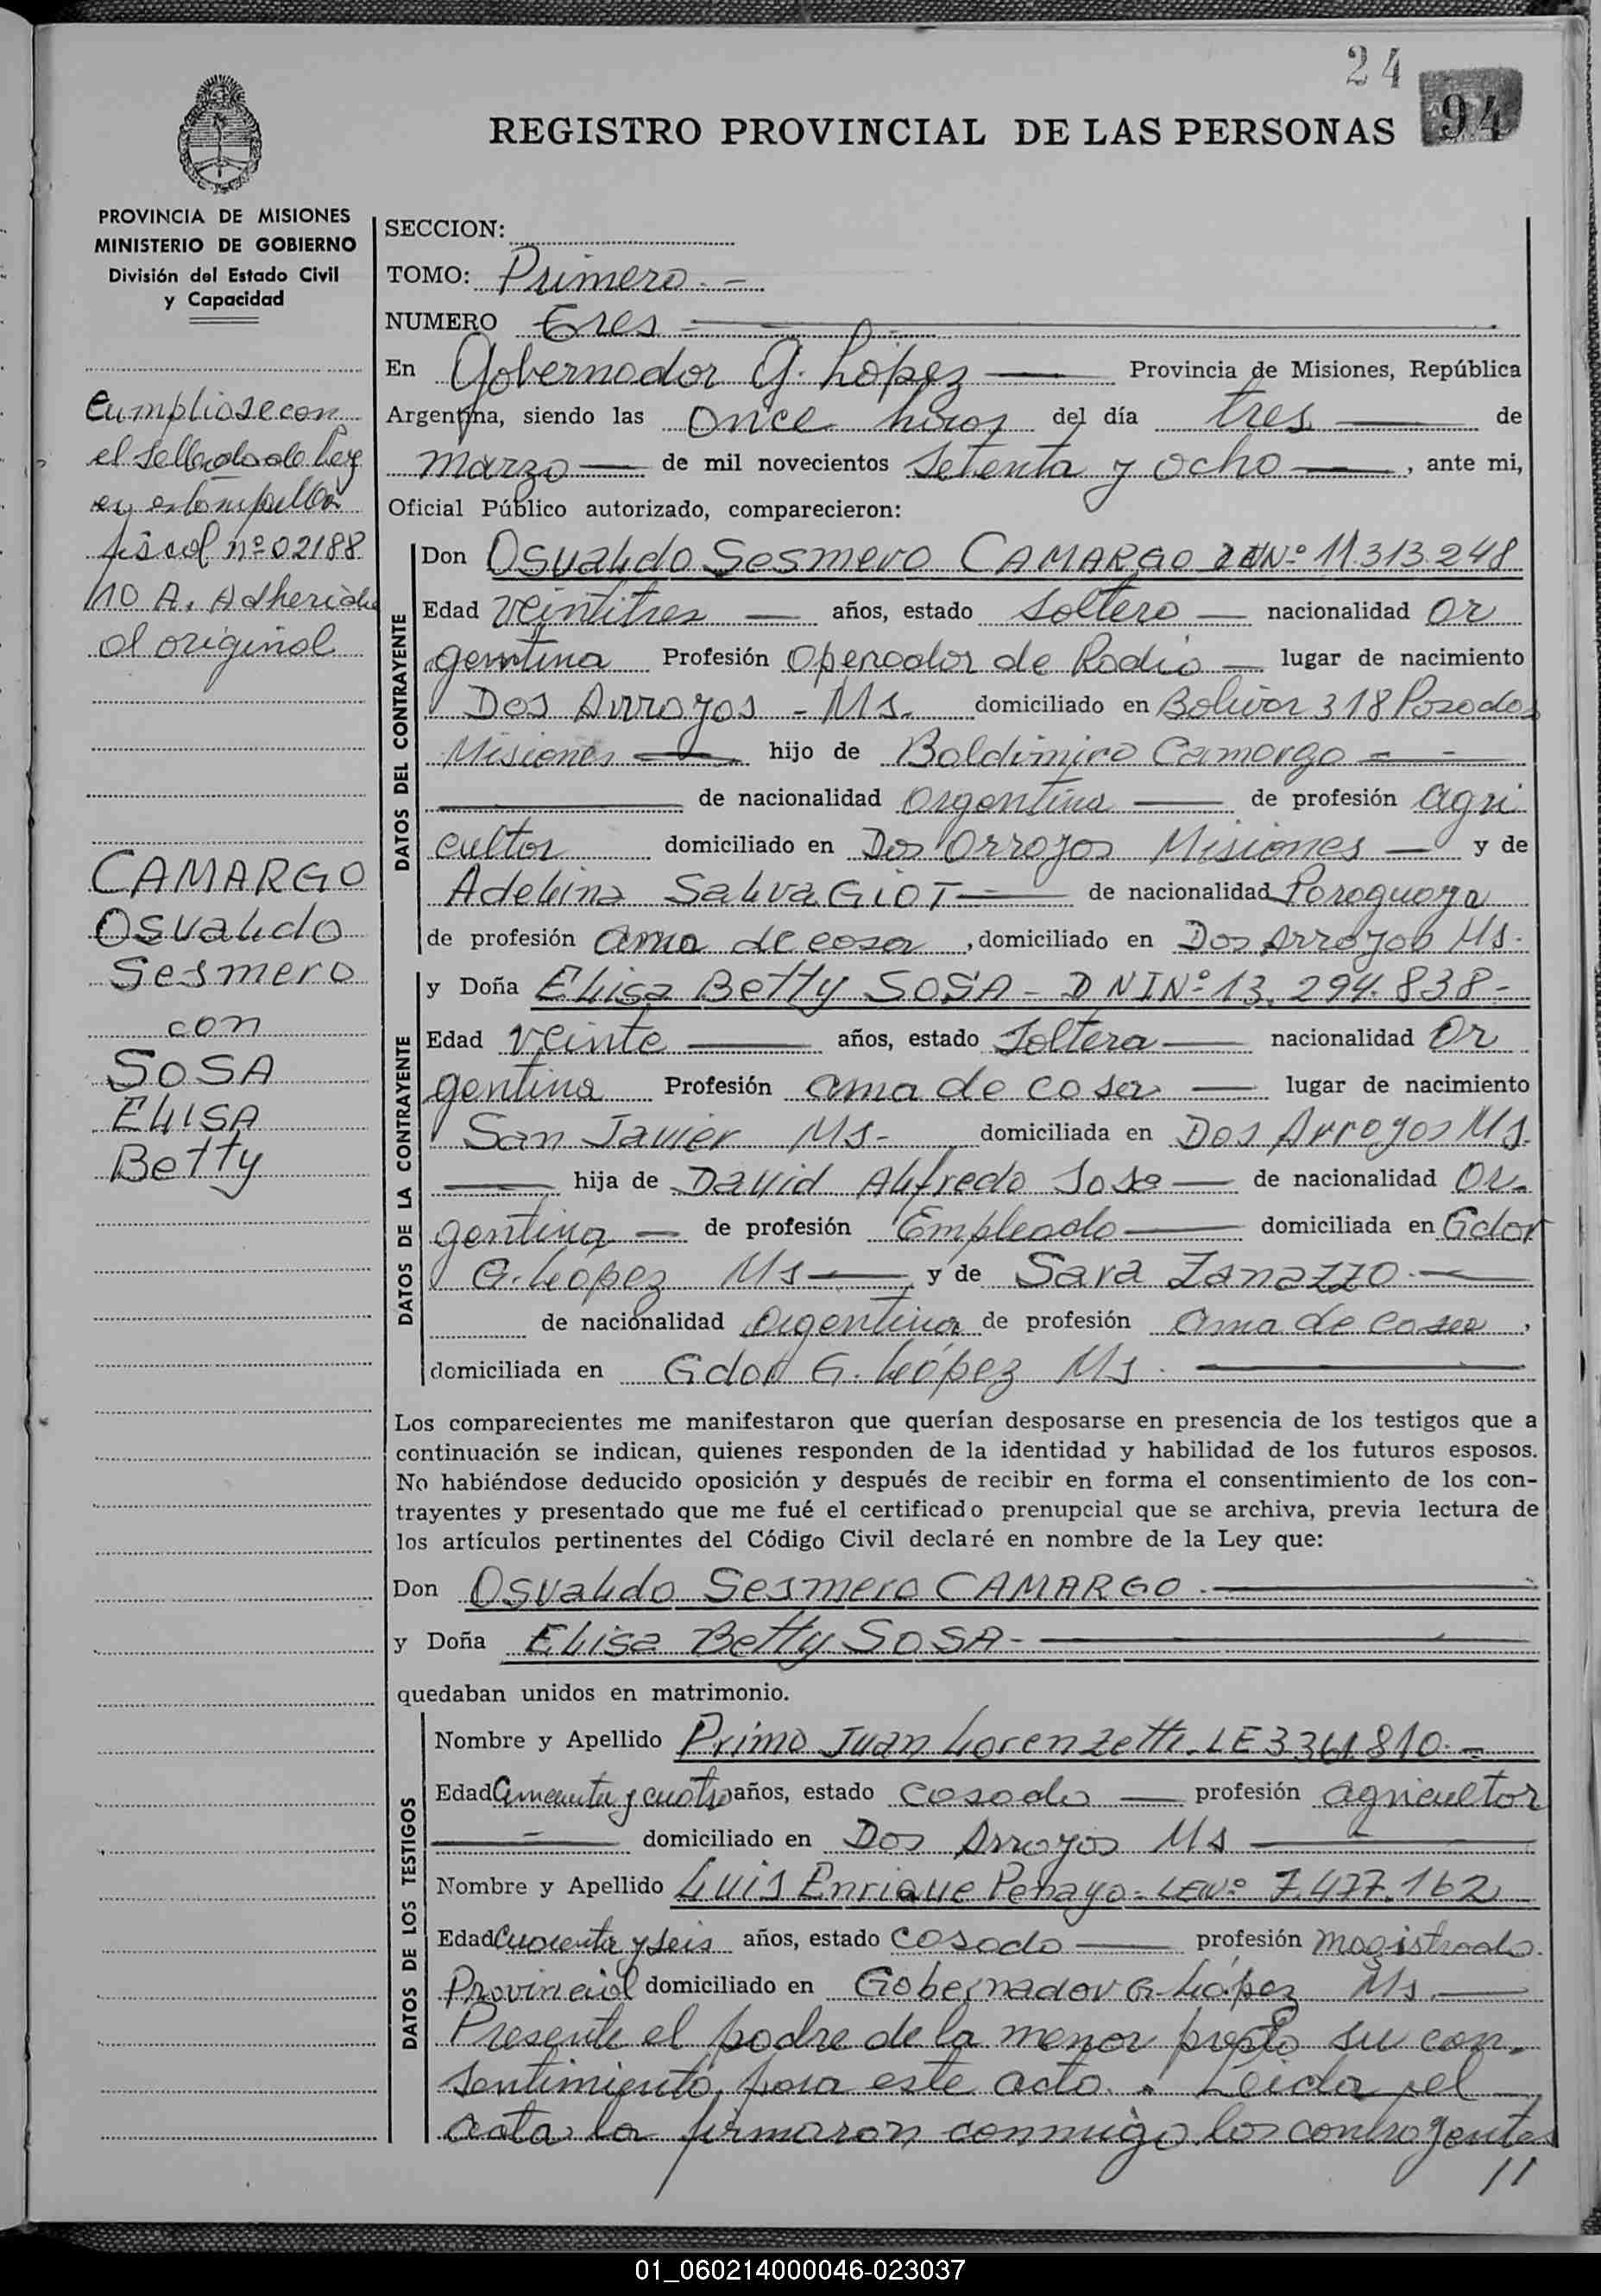 24
94
REGISTRO PROVINCIAL DE LAS PERSONAS
PROVINCIA DE MISIONES
MINISTERIO DE GOBIERNO
División del Estado Civil
y Capacidad
Cumpliose con
el sellado de Ley
en estampilla
fiscal nº 02188
10 A. Adherida
al original
CAMARGO
Osvaldo
Sesmero
con
SOSA
ELISA
Betty
SECCION:
TOMO: Primero.-
NUMERO Tres
En Gobernador G. López Provincia de Misiones, República
Argentina, siendo las Once horas del día tres de
marzo de mil novecientos Setenta y ocho, ante mi,
Oficial Público autorizado, comparecieron:
DATOS DEL CONTRAYENTE
Don Osvaldo Sesmero CAMARGO Nº 11.313.248
Edad Veintitres años, estado Soltero nacionalidad Ar
gentina Profesión Operador de Radio lugar de nacimiento
Dos Arroyos - Ms. domiciliado en Bolivar 318 Posadas
Misiones hijo de Baldimiro Camargo
de nacionalidad Argentina de profesión Agri
cultor domiciliado en Dos Arroyos Misiones y de
Adelina SalvaGIOT de nacionalidad Paraguaya
de profesión ama de casa, domiciliado en Dos Arroyos Ms.
DATOS DE LA CONTRAYENTE
y Doña Elisa Betty SOSA - DNI Nº 13.294.838-
Edad Veinte años, estado Soltera nacionalidad Ar
gentina Profesión ama de casa lugar de nacimiento
San Javier Ms- domiciliada en Dos Arroyos Ms.
hija de David Alfredo Sosa de nacionalidad Ar-
gentina de profesión Empleado domiciliada en Gdor
G. López Ms y de Sara Zanazzo.
de nacionalidad Argentina de profesión Ama de casa,
domiciliada en Gdor G. López Ms.
Los comparecientes me manifestaron que querían desposarse en presencia de los testigos que a
continuación se indican, quienes responden de la identidad y habilidad de los futuros esposos.
No habiéndose deducido oposición y después de recibir en forma el consentimiento de los con-
trayentes y presentado que me fué el certificado prenupcial que se archiva, previa lectura de
los artículos pertinentes del Código Civil declaré en nombre de la Ley que:
Don Osvaldo Sesmero CAMARGO.
y Doña Elisa Betty SOSA-
quedaban unidos en matrimonio.
DATOS DE LOS TESTIGOS
Nombre y Apellido Primo Juan Lorenzetti - LE
Edad Cincuenta y cuatro años, estado Casado profesión agricultor
domiciliado en Dos Arroyos Ms
Nombre y Apellido Luis Enrique Penayo - LE Nº 7.477.162
Edad Cuarenta y seis años, estado Casado profesión magistrado
Provincial domiciliado en Gobernador G. López Ms.
Presente el padre de la menor prestó su con-
sentimiento, para este acto. Leida el
acta la firmaron conmigo los contrayentes
//
01_060214000046-023037